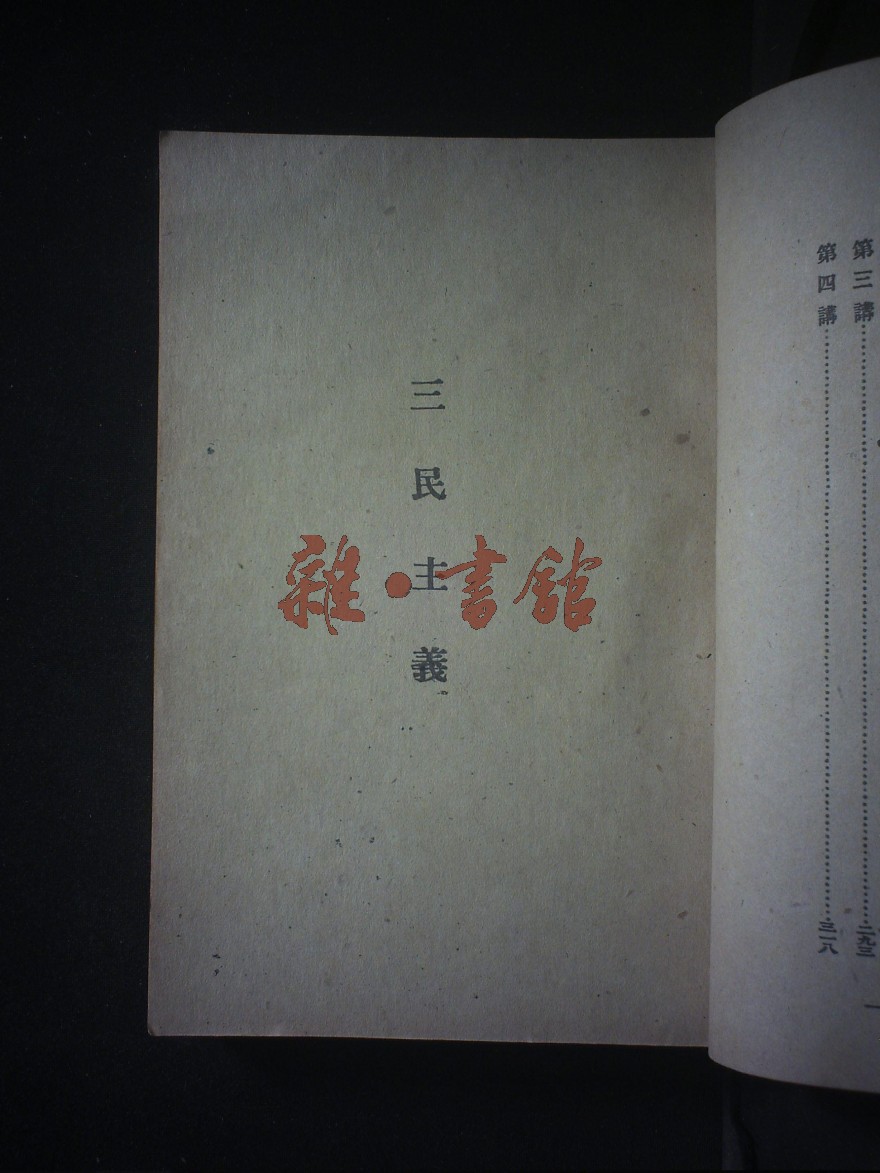 第三講……………………二九三
第四講……………………三一八
三民主義
雜·書館